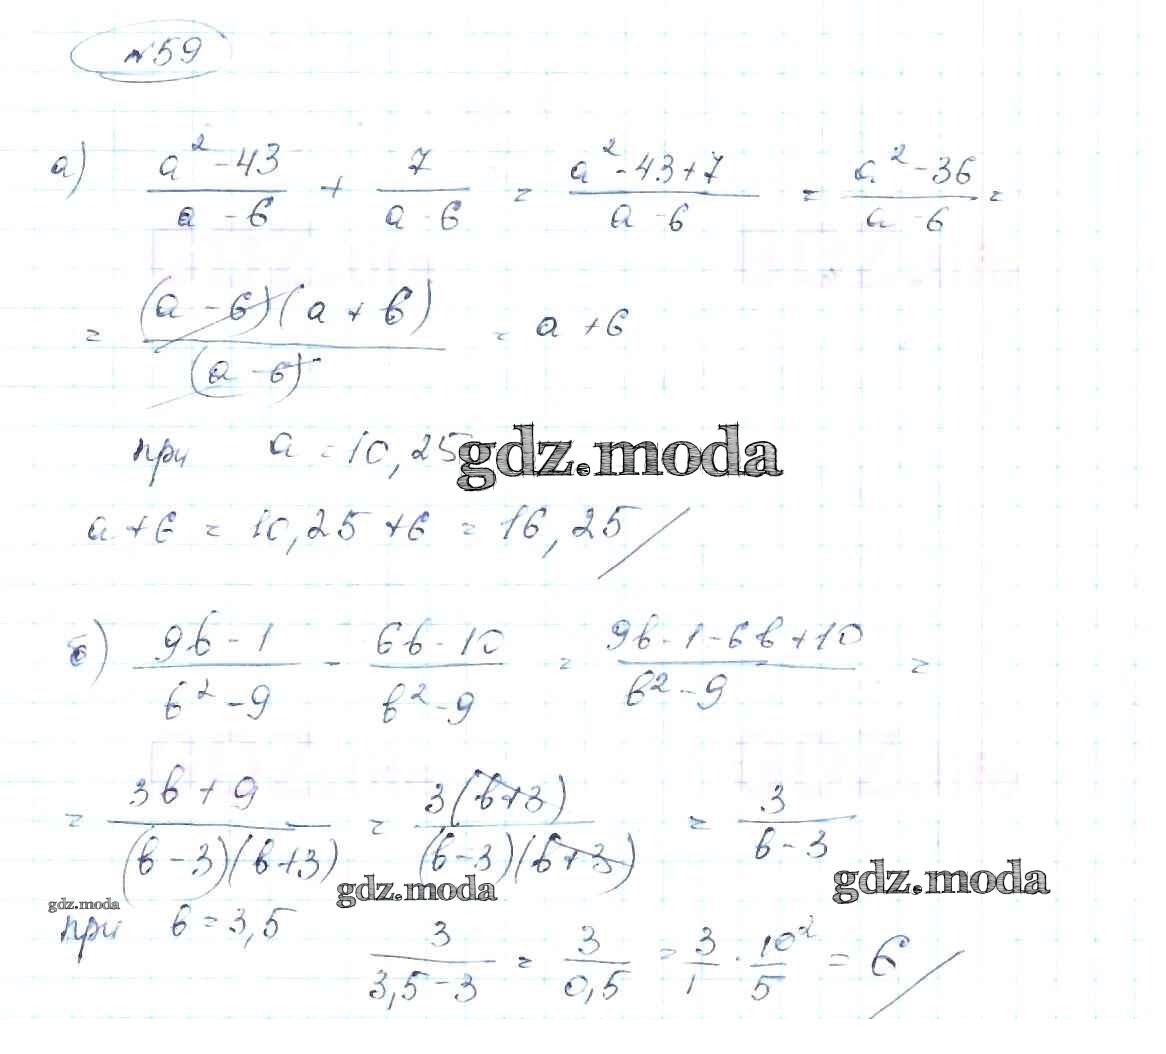 №59
а) (a² - 43)/(a - 6) + 7/(a - 6) = (a² - 43 + 7)/(a - 6) = (a² - 36)/(a - 6) =
= ((a - 6)(a + 6))/(a - 6) = a + 6
при a = 10,25
gdz.moda
a + 6 = 10,25 + 6 = 16,25
б) (9b - 1)/(b² - 9) - (6b - 10)/(b² - 9) = (9b - 1 - 6b + 10)/(b² - 9) =
= (3b + 9)/((b - 3)(b + 3)) = (3(b + 3))/((b - 3)(b + 3)) = 3/(b - 3)
gdz.moda gdz.moda gdz.moda
при b = 3,5 3/(3,5 - 3) = 3/0,5 = 3/1 · 10²/5 = 6